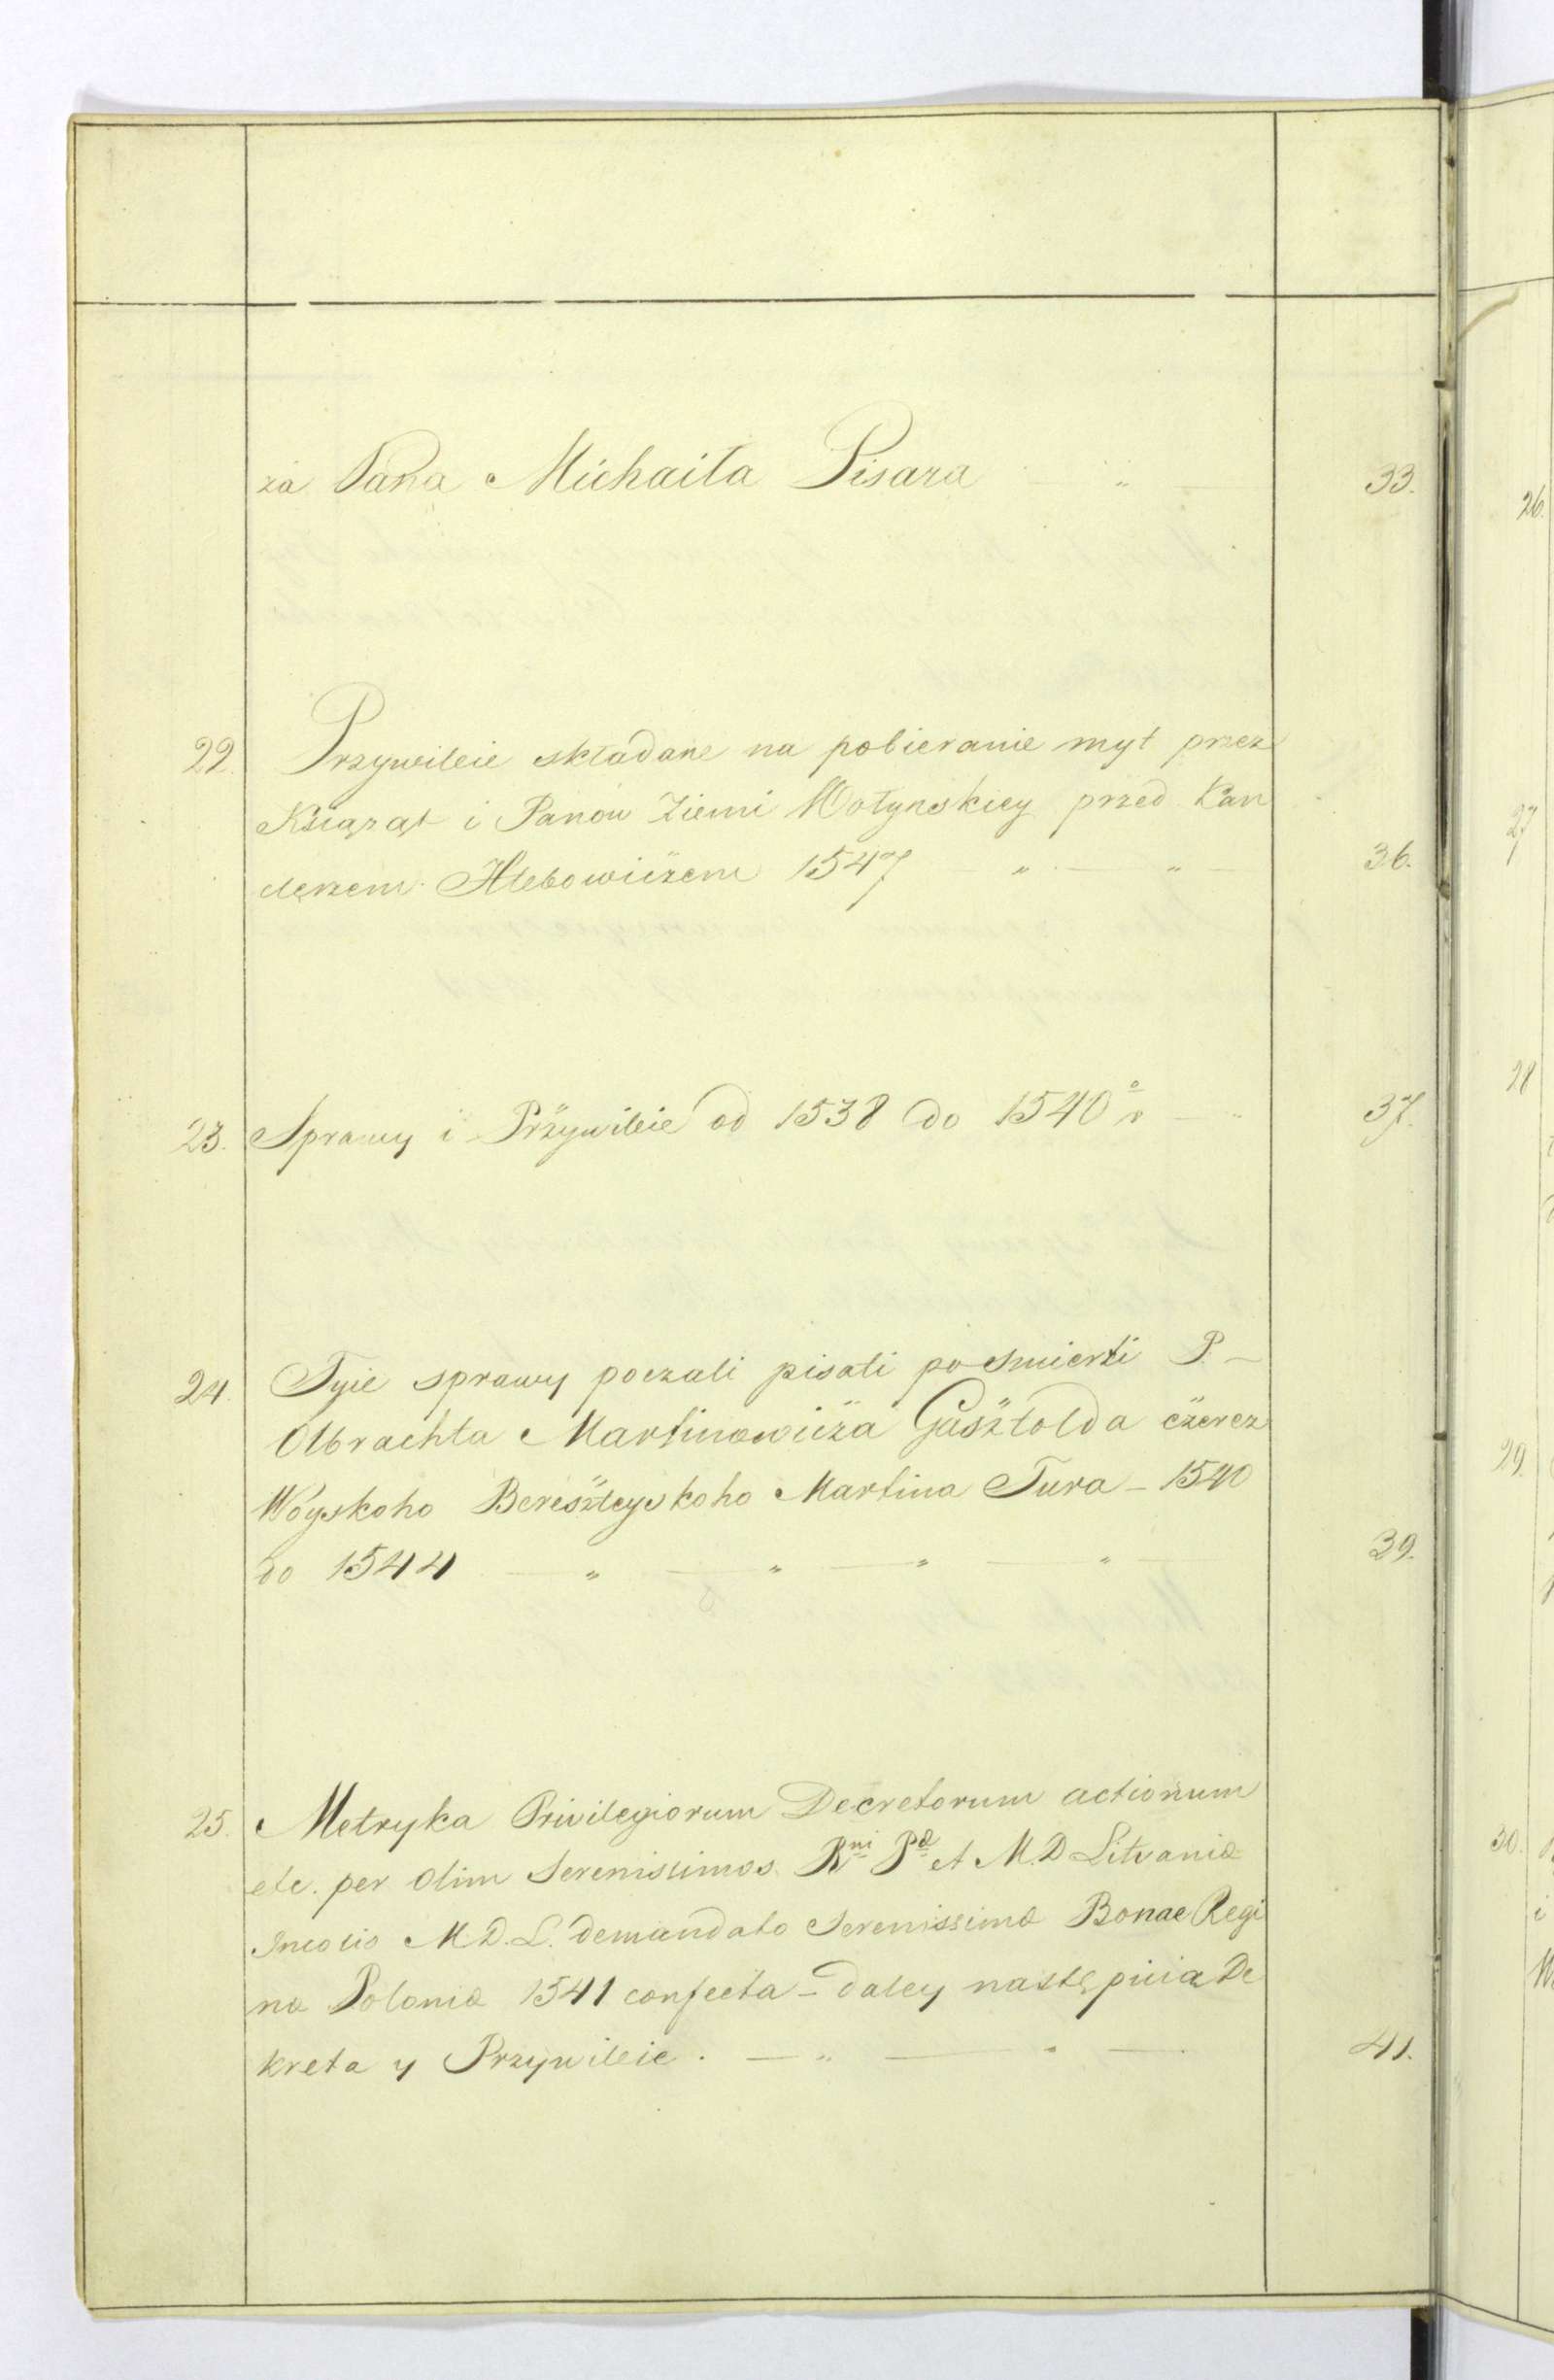 za Pana Michaiła Pisara " 33.
22. Przywileie składane na pobieranie myt przez
Książąt i Panow Ziemi Wołynskiey przed Kan
clerzem Hlebowiczem 1547 " — " 36.
23. Sprawy i Przywileie od 1538 do 1540 r — " 37.
24. Tyie sprawy poczali pisati po Smierti P. —
Olbrachta Martinowicza Gasztolda czerez
Woyskoho Beresteyskoho Martina Tura — 1540
do 1544 — " — " — " — " 39.
25. Metryka Privilegiorum Decretorum actionum
etc. per olim Serenissimos Rni Pæ et M. D Litvaniæ
Incolis M. D. L. demandato Serenissimæ Bonae Regi
næ Poloniæ 1541 confecta — daley następuią De
kreta y Przywileie . — " — " — 41.
26.
27
28
29.
30.